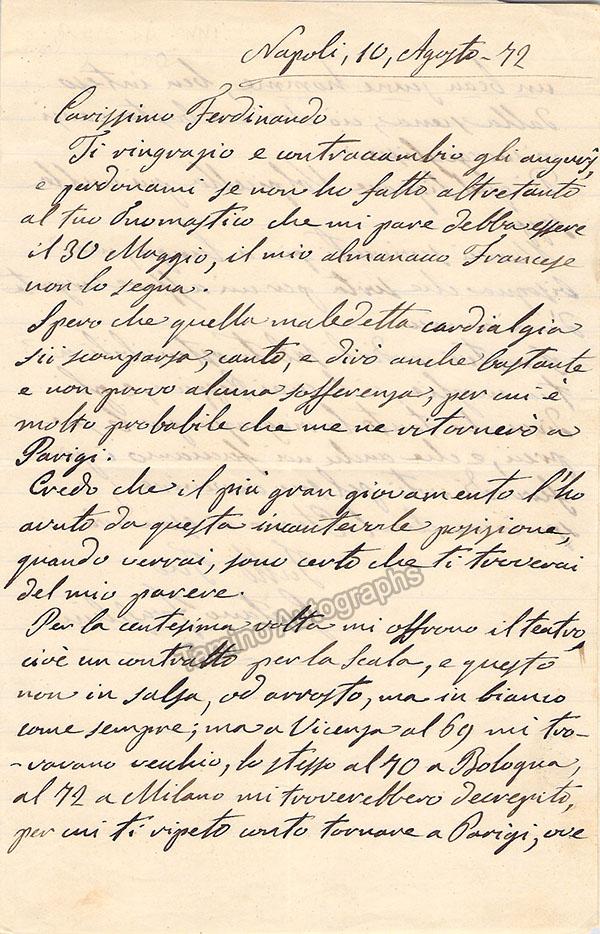 Napoli, 10, Agosto - 72
Carissimo Ferdinando
Ti ringrazio e contraccambio gli augurj,
e perdonami se non ho fatto altretanto
al tuo Onomastico che mi pare debba essere
il 30 Maggio, il mio almanacco Francese
non lo segna.
Spero che quella maledetta cardialgia
sii scomparsa, canto, e dirò anche bastante
e non provo alcuna sofferenza, per cui è
molto probabile che me ne ritornerò a
Parigi.
Credo che il più gran giovamento l'ho
avuto da questa incantevole posizione,
quando verrai, sono certo che ti troverai
del mio parere.
Per la centesima volta mi offrono il teatro,
cioè un contratto per la Scala, e questo
non in salsa, od arrosto, ma in bianco
come sempre; ma a Vicenza al 69 mi tro-
-vavano vecchio, lo stesso al 70 a Bologna,
al 72 a Milano mi troverebbero decrepito,
per cui ti ripeto conto tornare a Parigi, ove
Tamino Autographs